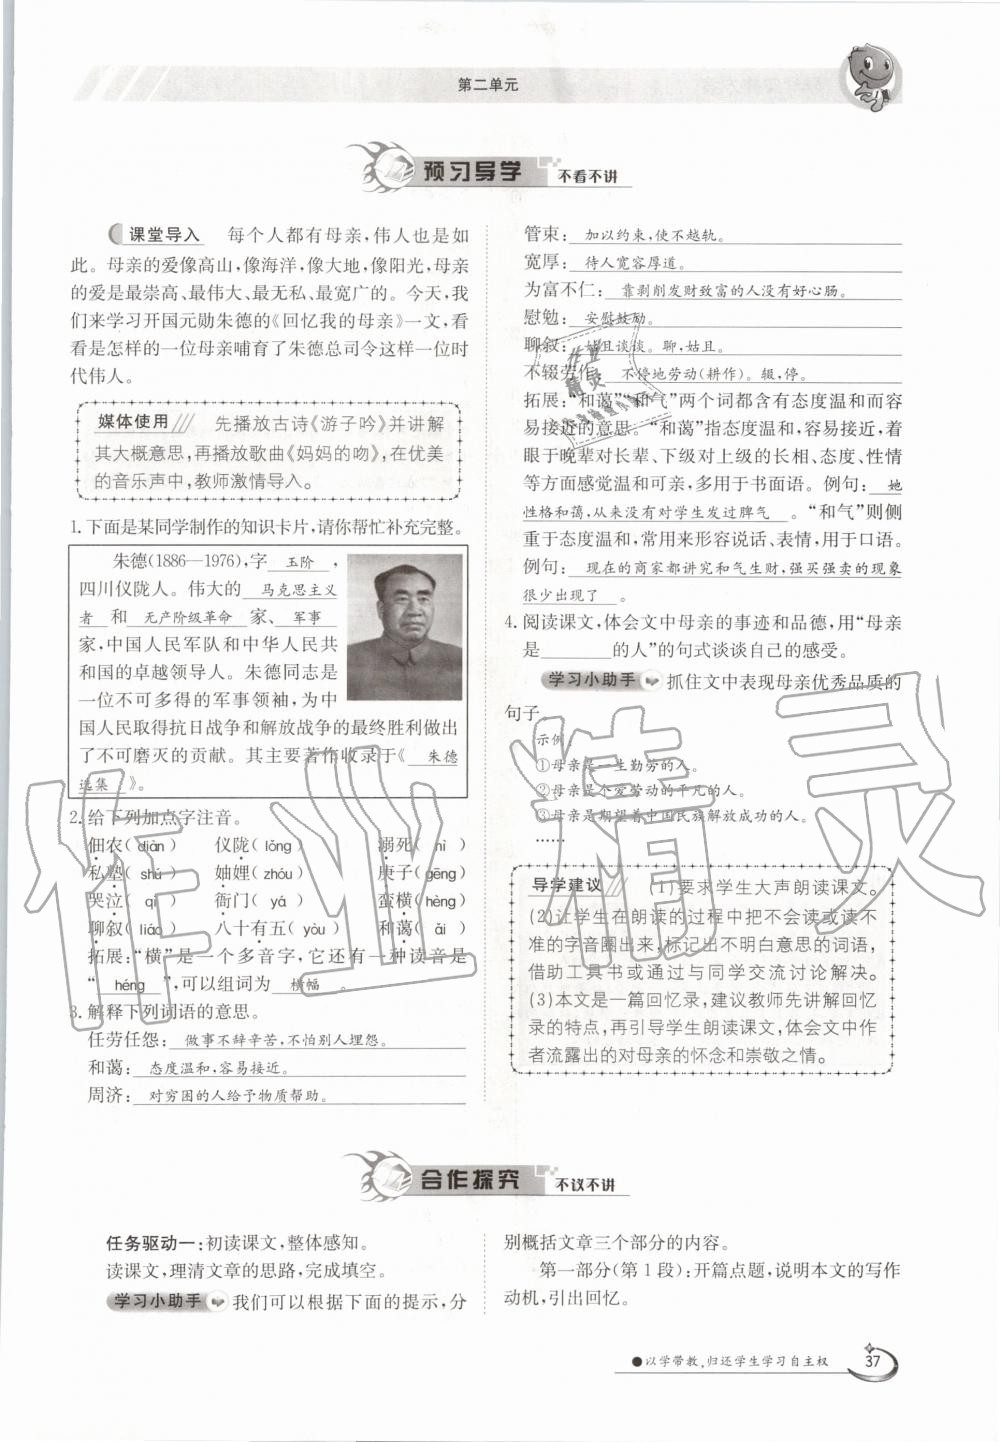 第二单元
预习导学 不看不讲
课堂导入 每个人都有母亲,伟人也是如
此。母亲的爱像高山,像海洋,像大地,像阳光,母亲
的爱是最崇高、最伟大、最无私、最宽广的。今天,我
们来学习开国元勋朱德的《回忆我的母亲》一文,看
看是怎样的一位母亲哺育了朱德总司令这样一位时
代伟人。
媒体使用 先播放古诗《游子吟》并讲解
其大概意思,再播放歌曲《妈妈的吻》,在优美
的音乐声中,教师激情导入。
1. 下面是某同学制作的知识卡片,请你帮忙补充完整。
朱德(1886—1976),字 玉阶 ,
四川仪陇人。伟大的 马克思主义
者 和 无产阶级革命 家、 军事
家,中国人民军队和中华人民共
和国的卓越领导人。朱德同志是
一位不可多得的军事领袖,为中
国人民取得抗日战争和解放战争的最终胜利做出
了不可磨灭的贡献。其主要著作收录于《 朱德
选集 》。
2. 给下列加点字注音。
佃农(diàn) 仪陇(lǒng) 溺死(nì)
私塾(shú) 妯娌(zhóu) 庚子(gēng)
哭泣(qì) 衙门(yá) 蛮横(hèng)
聊叙(liáo) 八十有五(yòu) 和蔼(ǎi)
拓展:“横”是一个多音字,它还有一种读音是
“ héng ”,可以组词为 横幅 。
3. 解释下列词语的意思。
任劳任怨: 做事不辞辛苦,不怕别人埋怨。
和蔼: 态度温和,容易接近。
周济: 对穷困的人给予物质帮助。
管束: 加以约束,使不越轨。
宽厚: 待人宽容厚道。
为富不仁: 靠剥削发财致富的人没有好心肠。
慰勉: 安慰鼓励。
聊叙: 姑且谈谈。聊,姑且。
不辍劳作: 不停地劳动(耕作)。辍,停。
拓展:“和蔼”“和气”两个词都含有态度温和而容
易接近的意思。“和蔼”指态度温和,容易接近,着
眼于晚辈对长辈、下级对上级的长相、态度、性情
等方面感觉温和可亲,多用于书面语。例句: 她
性格和蔼,从来没有对学生发过脾气 。“和气”则侧
重于态度温和,常用来形容说话、表情,用于口语。
例句: 现在的商家都讲究和气生财,强买强卖的现象
很少出现了 。
4. 阅读课文,体会文中母亲的事迹和品德,用“母亲
是________的人”的句式谈谈自己的感受。
学习小助手 抓住文中表现母亲优秀品质的
句子
示例:
①母亲是一生勤劳的人。
②母亲是个爱劳动的平凡的人。
③母亲是期望着中国民族解放成功的人。
……
导学建议 (1)要求学生大声朗读课文。
(2)让学生在朗读的过程中把不会读或读不
准的字音圈出来,标记出不明白意思的词语,
借助工具书或通过与同学交流讨论解决。
(3)本文是一篇回忆录,建议教师先讲解回忆
录的特点,再引导学生朗读课文,体会文中作
者流露出的对母亲的怀念和崇敬之情。
合作探究 不议不讲
任务驱动一:初读课文,整体感知。
读课文,理清文章的思路,完成填空。
学习小助手 我们可以根据下面的提示,分
别概括文章三个部分的内容。
第一部分(第1段):开篇点题,说明本文的写作
动机,引出回忆。
●以学带教,归还学生学习自主权
37
作业精灵